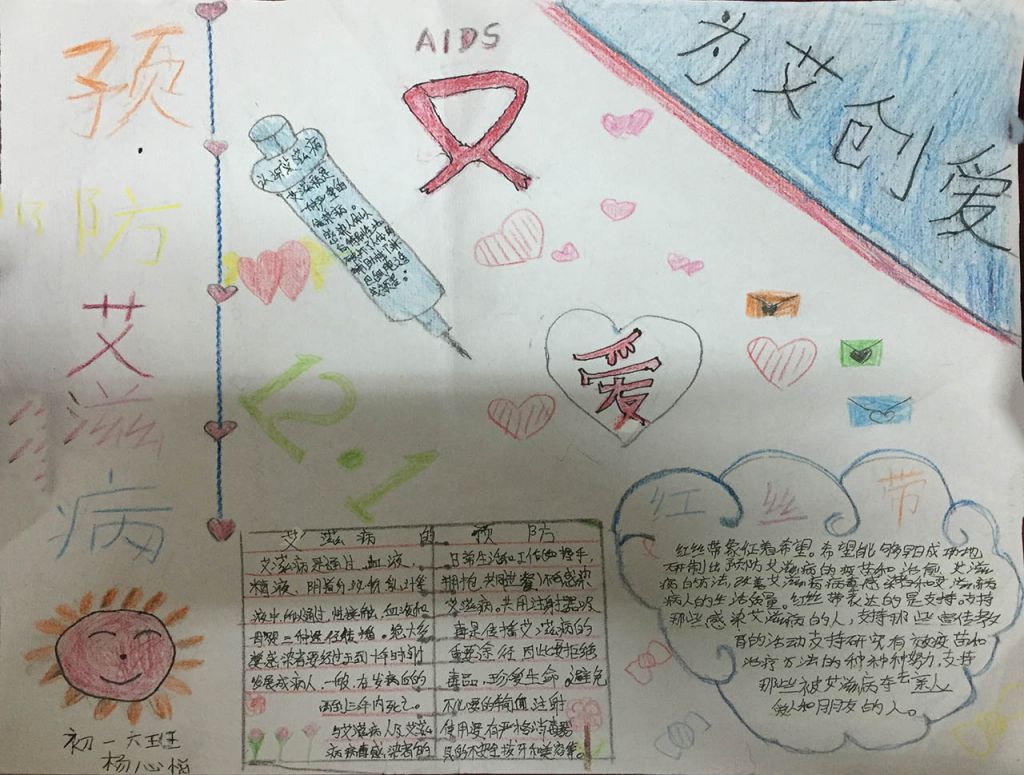 预防艾滋病
AIDS
为艾创爱
认识艾滋病
爱
12.1
红丝带
红丝带象征着希望。希望能够早日成功地
研制出预防艾滋病的疫苗和治愈艾滋
病的方法,改善艾滋病病毒感染者和艾滋病
病人的生活质量。红丝带表达的是支持。支持
那些感染艾滋病的人,支持那些宣传教
育的活动支持研究有效疫苗和
治疗方法的种种努力,支持
那些被艾滋病夺去亲人
爱人和朋友的人。
艾滋病的预防
艾滋病是通过血液、
精液、阴道分泌物乳汁等
母婴三种途径传播。绝大多
数感染者要经过五到十年时间
发展成病人,一般在发病后的
两到三年内死亡。
与艾滋病人及艾滋
病病毒感染者的
日常生活和工作
拥抱,共同进餐不会感染
艾滋病。共用注射器吸
毒是传播艾滋病的
重要途径因此要拒绝
毒品,珍爱生命。避免
不必要的输血注射
使用要有严格消毒器
初一六班